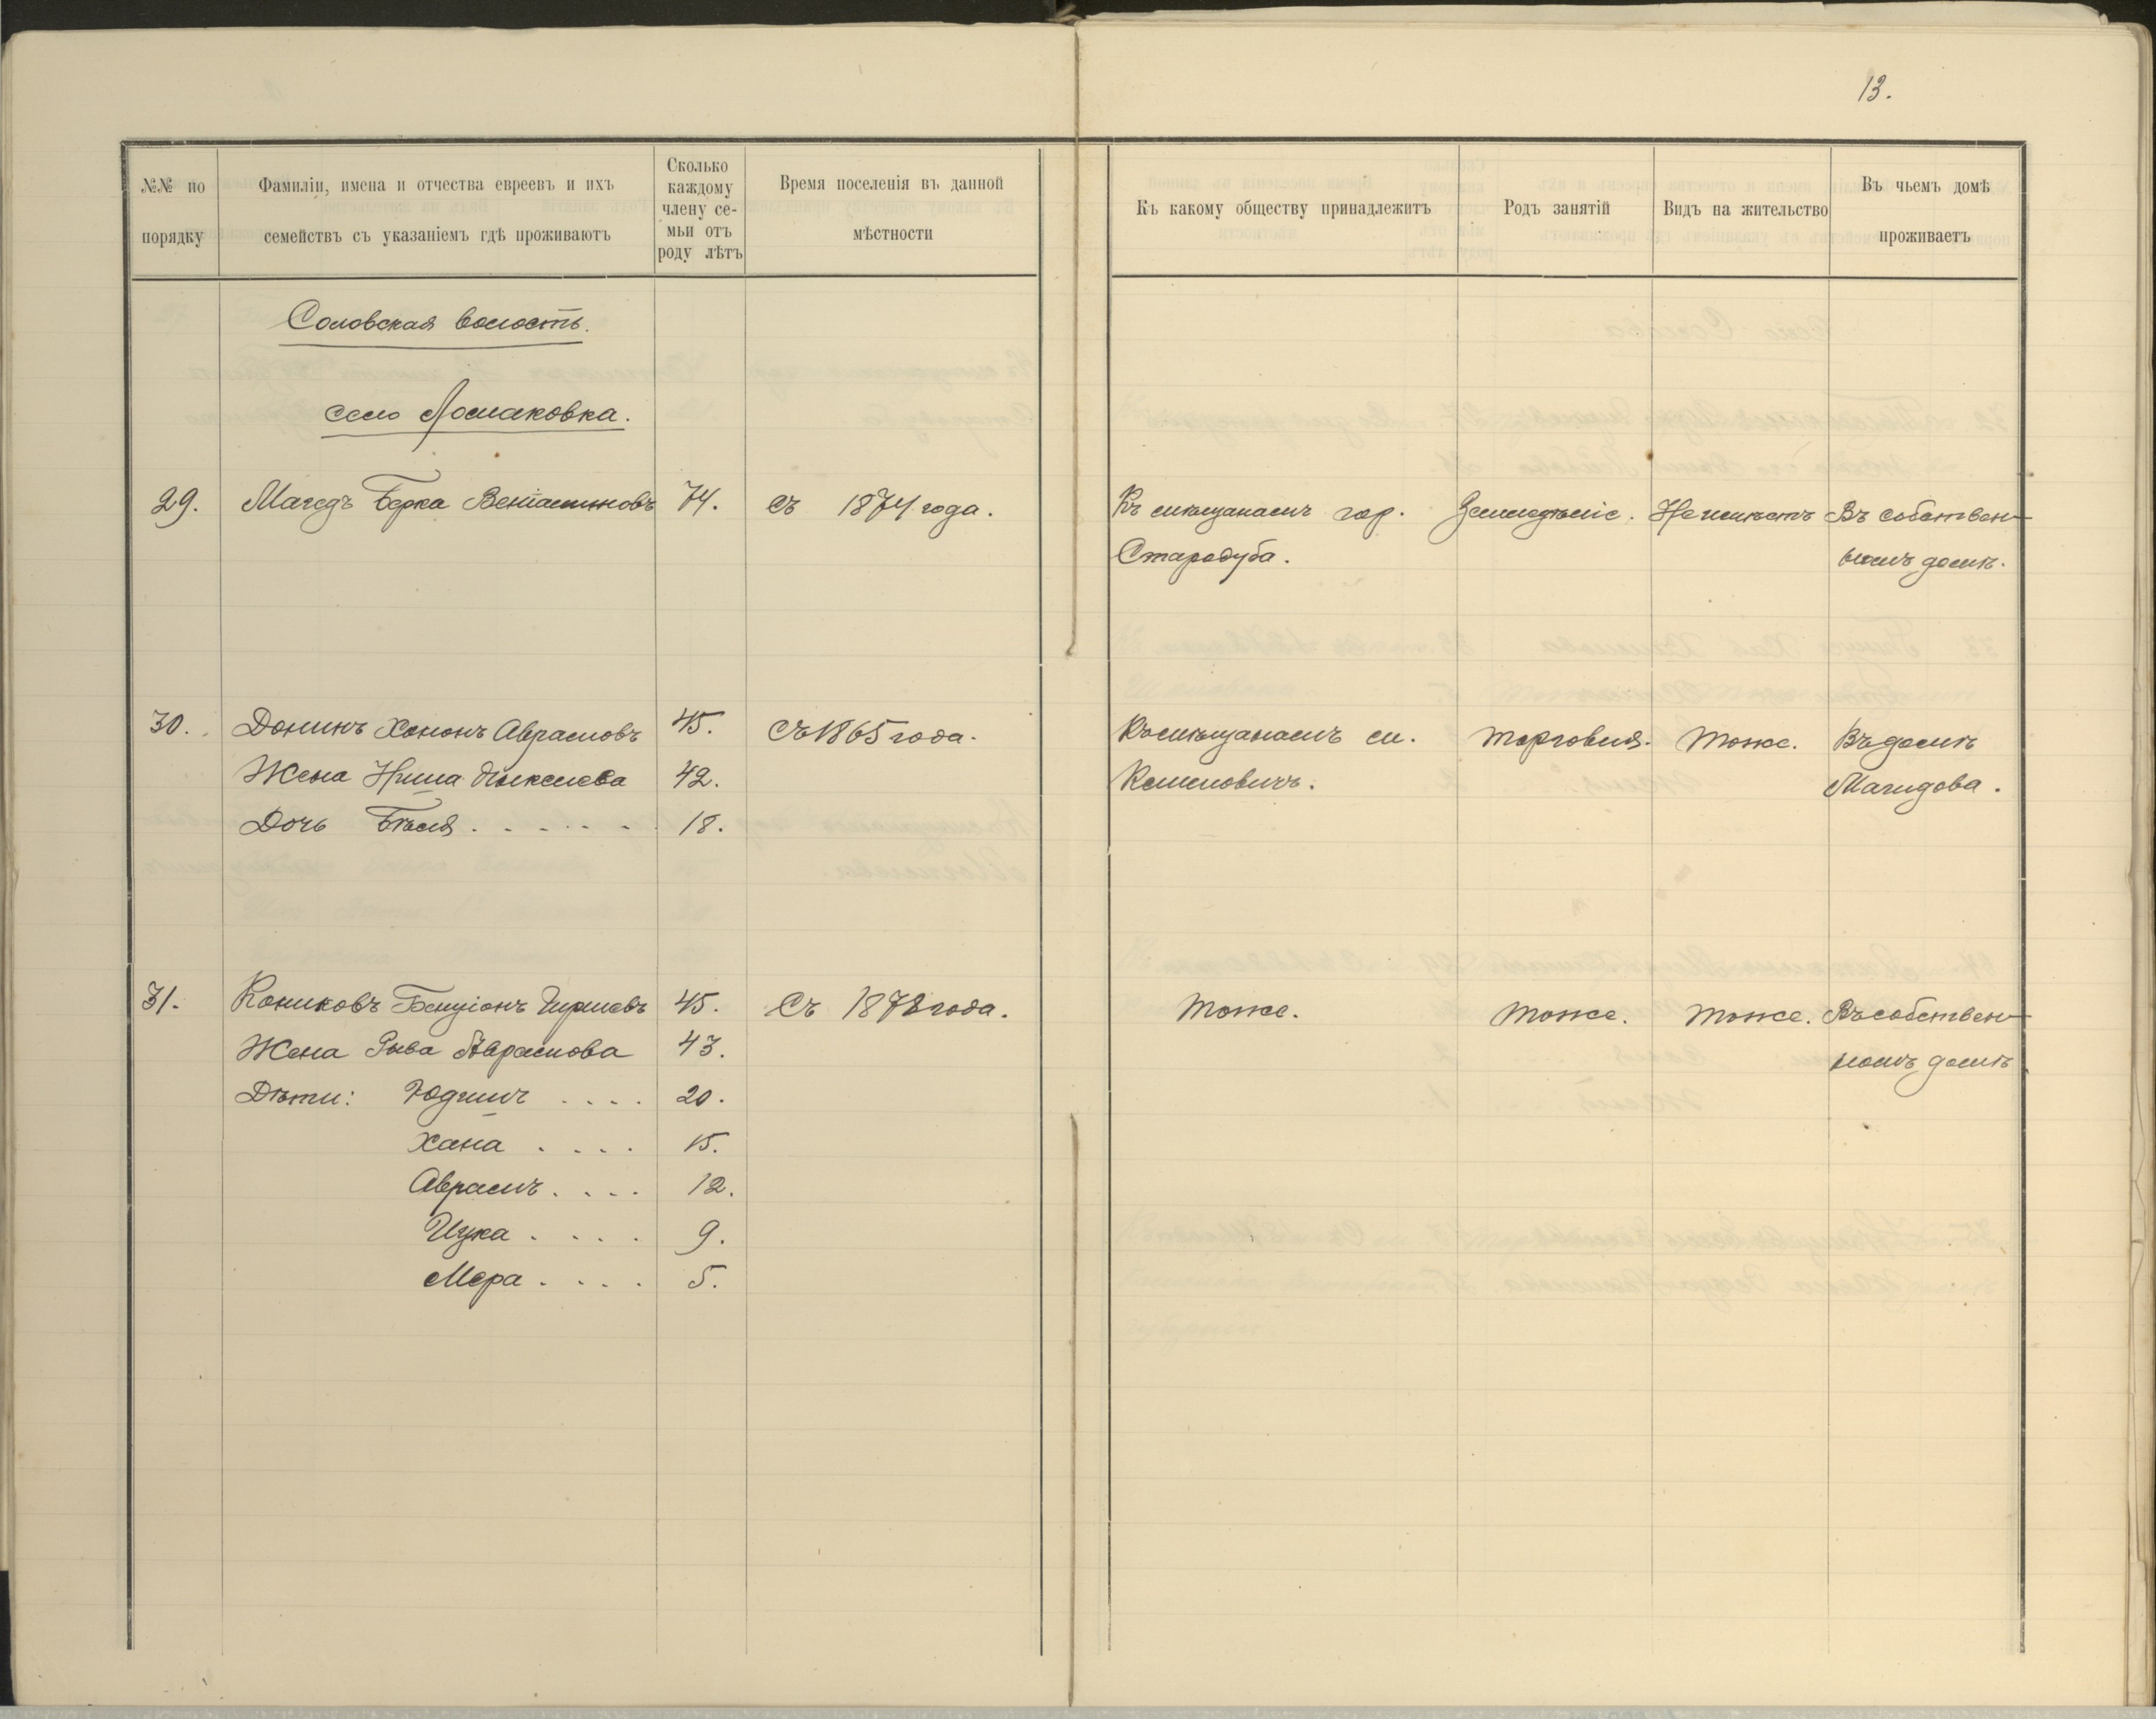 13.
№№ по порядку
Фамиліи, имена и отчества евреевъ и ихъ семействъ съ указаніемъ гдѣ проживаютъ
Сколько каждому члену се-мьи отъ роду лѣтъ
Время поселенія въ данной мѣстности
Къ какому обществу принадлежитъ
Родъ занятій
Видъ на жительство
Въ чьемъ домѣ проживаетъ
Соловская волость.
село Ломаковка.
29. Магедъ Берка Веніаминовъ 74. съ 1874 года. Къ мѣщанамъ гор. Земледѣліе. Не имѣетъ Въ собствен-
Стародуба. номъ домѣ.
30. Донинъ Хононъ Абрамовъ 45. съ 1865 года. Къ мѣщанамъ м. торговля. тоже. Въ домѣ
Жена 42. Климовичъ. Магидова.
Дочь Бѣля 18.
31. Кониковъ Бенціонъ Гиршевъ 45. Съ 1878 года. тоже. тоже. тоже. Въ собствен-
Жена Рыва Абрамова 43. номъ домѣ
Дѣти: 20.
Хана 15.
Абрамъ 12.
Ицка 9.
Мера 5.